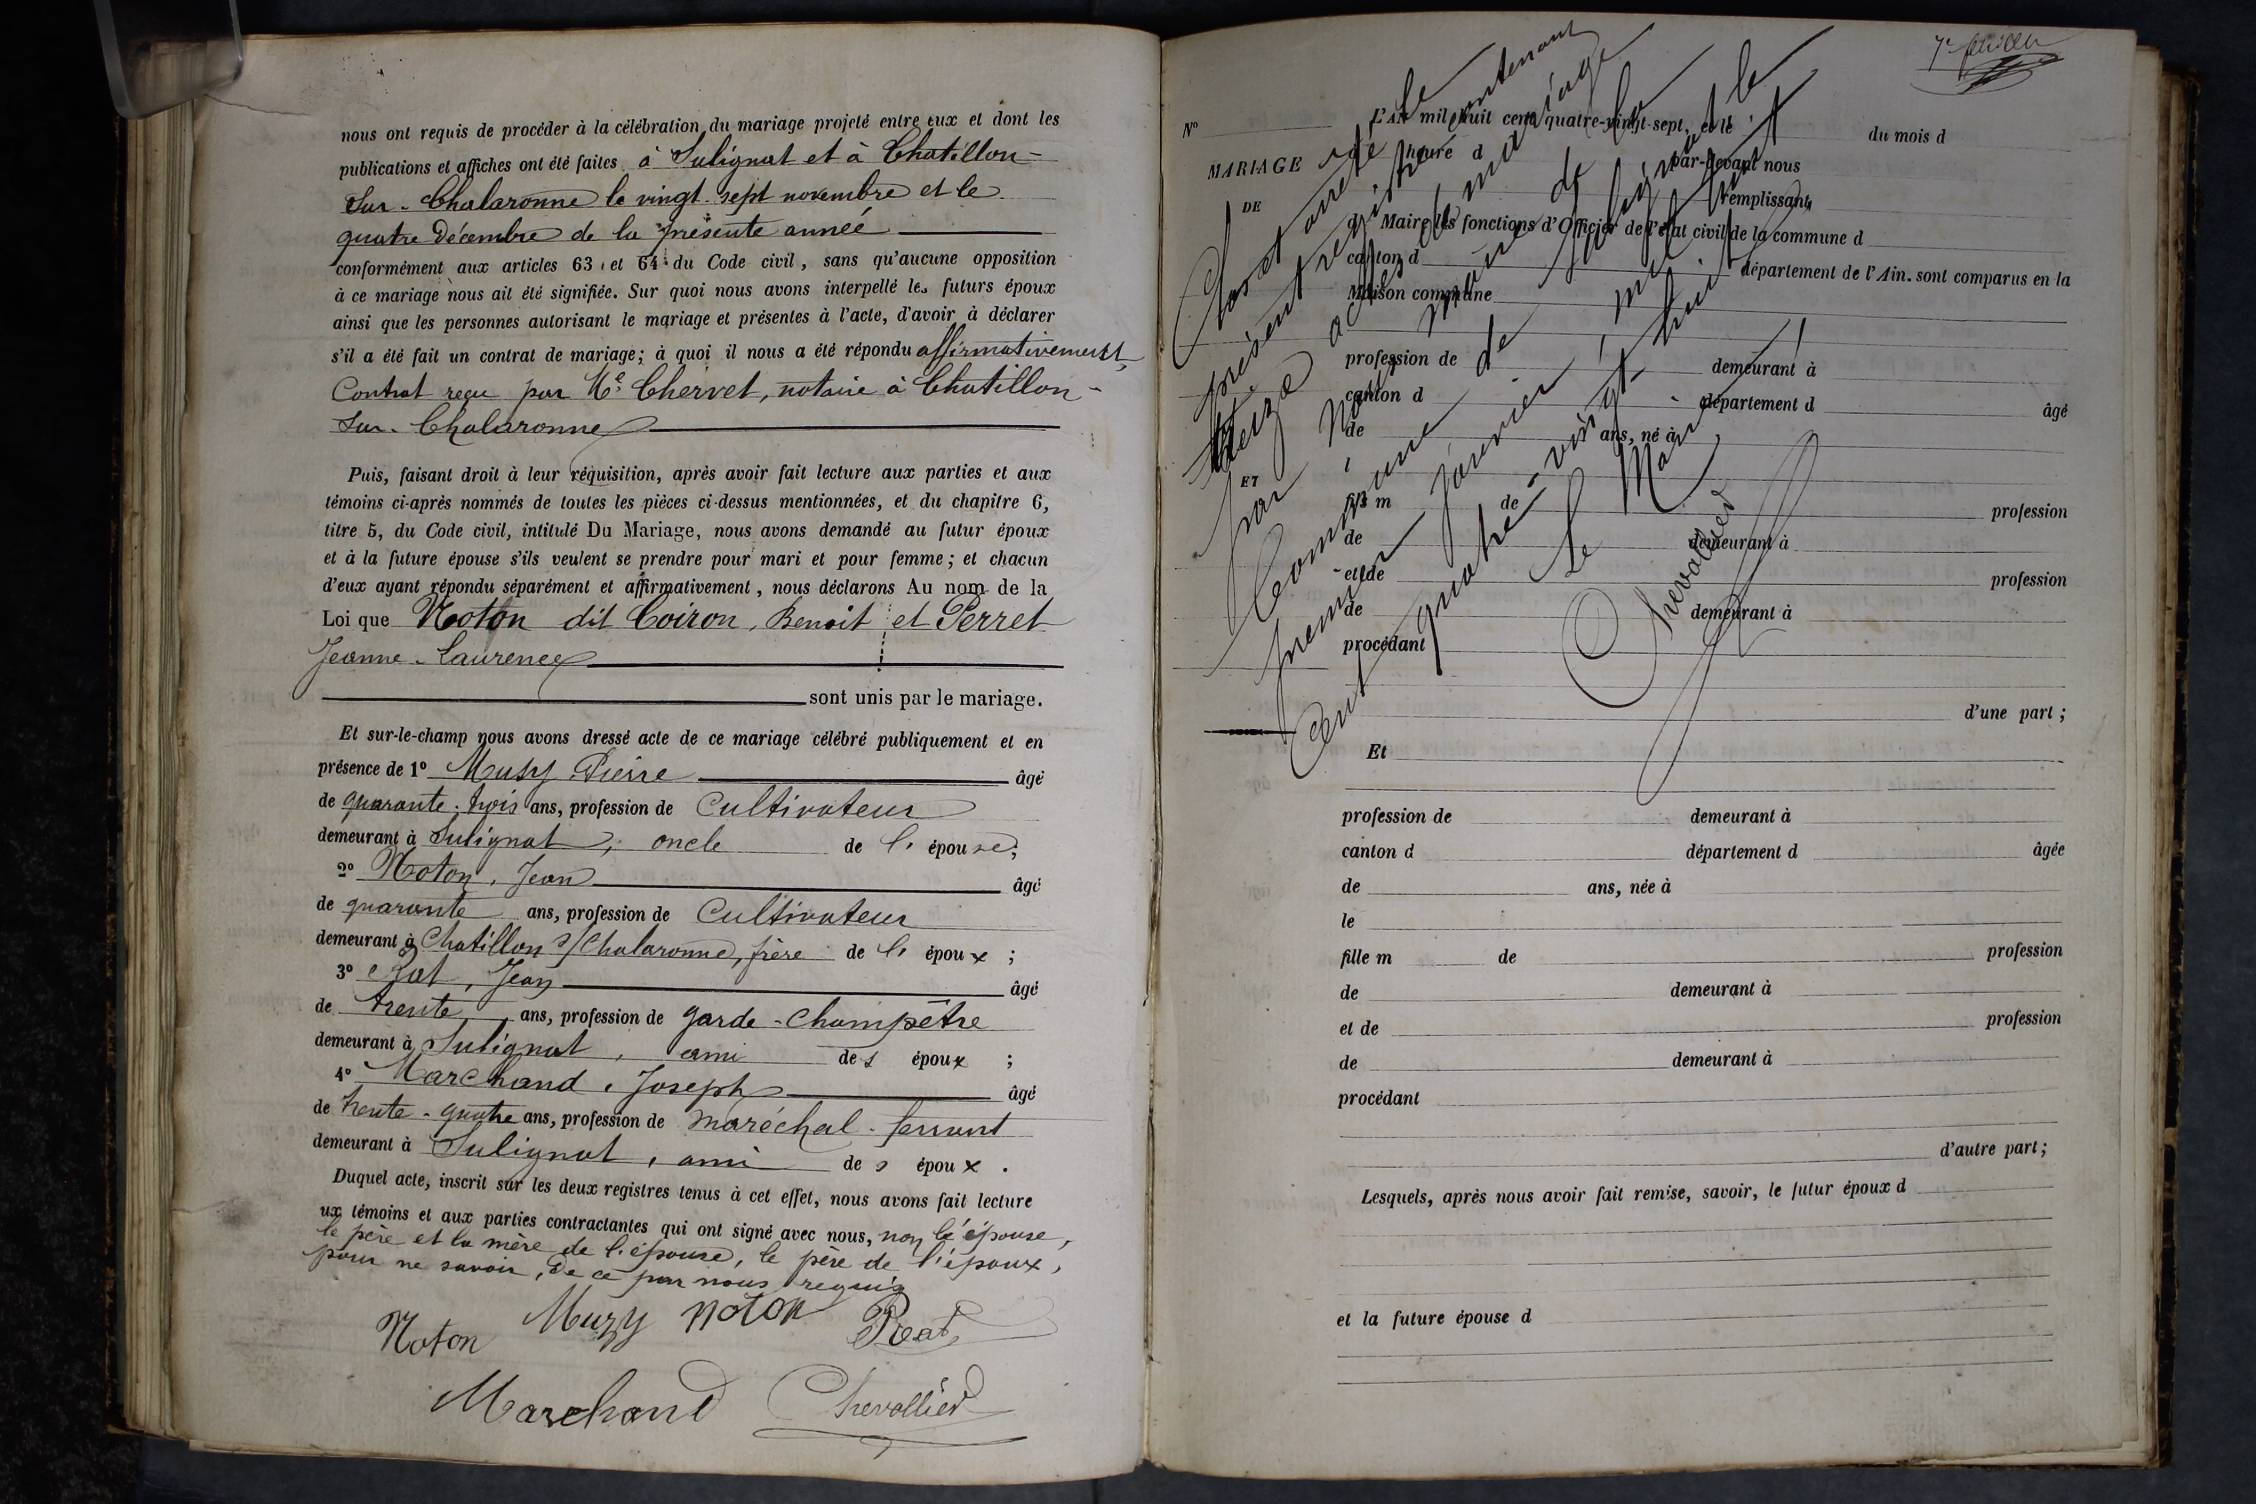 nous ont requis de procéder à la célébration du mariage projeté entre eux et dont les
publications et affiches ont été faites à Sulignat et à Chatillon-
Sur-Chalaronne le vingt-sept novembre et le
quatre Décembre de la présente année
conformément aux articles 63 et 64 du Code civil, sans qu'aucune opposition
à ce mariage nous ait été signifiée. Sur quoi nous avons interpellé les futurs époux
ainsi que les personnes autorisant le mariage et présentes à l'acte, d'avoir à déclarer
s'il a été fait un contrat de mariage; à quoi il nous a été répondu affirmativement,
Contrat reçu par Me Chervet, notaire à Chatillon-
Sur-Chalaronne
Puis, faisant droit à leur réquisition, après avoir fait lecture aux parties et aux
témoins ci-après nommés de toutes les pièces ci-dessus mentionnées, et du chapitre 6,
titre 5, du Code civil, intitulé Du Mariage, nous avons demandé au futur époux
et à la future épouse s'ils veulent se prendre pour mari et pour femme; et chacun
d'eux ayant répondu séparément et affirmativement, nous déclarons Au nom de la
Loi que Noton dit Coiron, Benoit et Perret
Jeanne-Laurence
sont unis par le mariage.
Et sur-le-champ nous avons dressé acte de ce mariage célébré publiquement et en
présence de 1° Muzy Pierre âgé
de quarante-trois ans, profession de Cultivateur
demeurant à Sulignat, oncle de l' épouse;
2° Noton, Jean âgé
de quarante ans, profession de Cultivateur
demeurant à Chatillon s/Chalaronne, frère de l' époux ;
3° Jean âgé
de trente ans, profession de garde-Champêtre
demeurant à Sulignat, ami des époux ;
4° Marchand, Joseph âgé
de trente-quatre ans, profession de maréchal-ferrant
demeurant à Sulignat, ami des époux .
Duquel acte, inscrit sur les deux registres tenus à cet effet, nous avons fait lecture
ux témoins et aux parties contractantes qui ont signé avec nous, non l'épouse,
le père et la mère de l'épouse, le père de l'époux,
pour ne savoir, de ce par nous requis
Noton Muzy Noton
Marchand Chevallier
7e
N°
MARIAGE
DE
ET
L'AN mil huit cent quatre-vingt-sept, et le du mois d
heure d par-devant nous
remplissant
d Maire les fonctions d'Officier de l'état civil de la commune d
canton d département de l'Ain. sont comparus en la
Maison commune
profession de demeurant à
canton d département d âgé
de ans, né à
fils m de profession
de demeurant à
et de profession
de demeurant à
procédant
d'une part;
Clos et arrêté le
présent registre contenant
treize actes de mariage
par nous, maire de la
Commune de Sulignat le
premier janvier, mil huit
cent quatre-vingt-huit
Le Maire,
Chevallier
Et
profession de demeurant à
canton d département d âgée
de ans, née à
le
fille m de profession
de demeurant à
et de profession
de demeurant à
procédant
d'autre part;
Lesquels, après nous avoir fait remise, savoir, le futur époux d
et la future épouse d